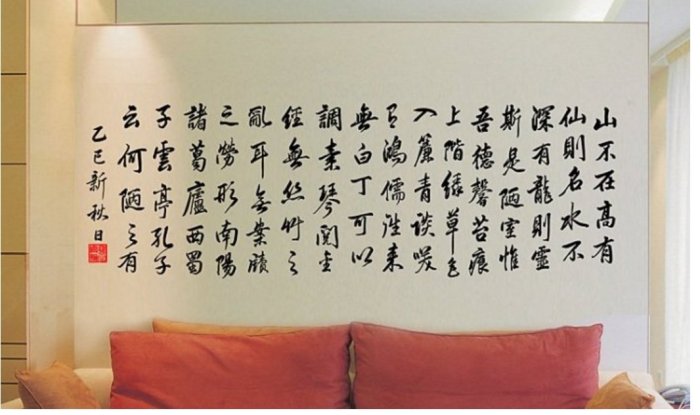 山不在高有
仙則名水不
深有龍則靈
斯是陋室惟
吾德馨苔痕
上階緑草色
入簾青談咲
有鴻儒往来
無白丁可以
調素琴閱金
經無絲竹之
亂耳無案牘
之勞形南陽
諸葛廬西蜀
子雲亭孔子
云何陋之有
乙巳新秋日